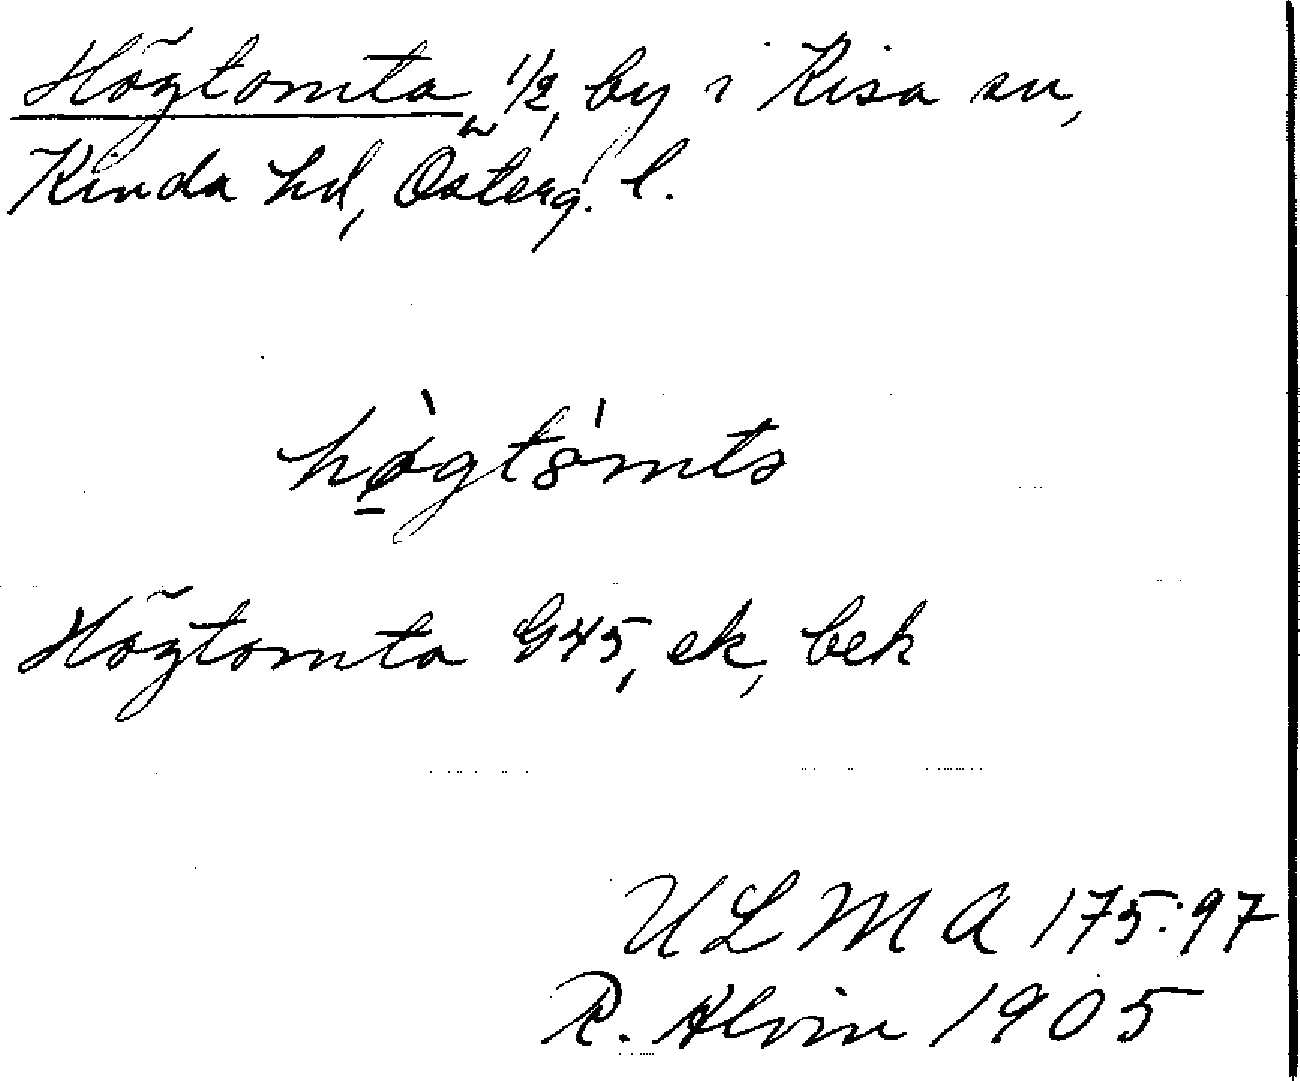 Högtomta, 1/2, by i Kisa sn,
Kinda hd, Österg. l.
hø̀gtómta
Högtomta G45, ek, bek
ULMA 175:97
R. Alvin 1905